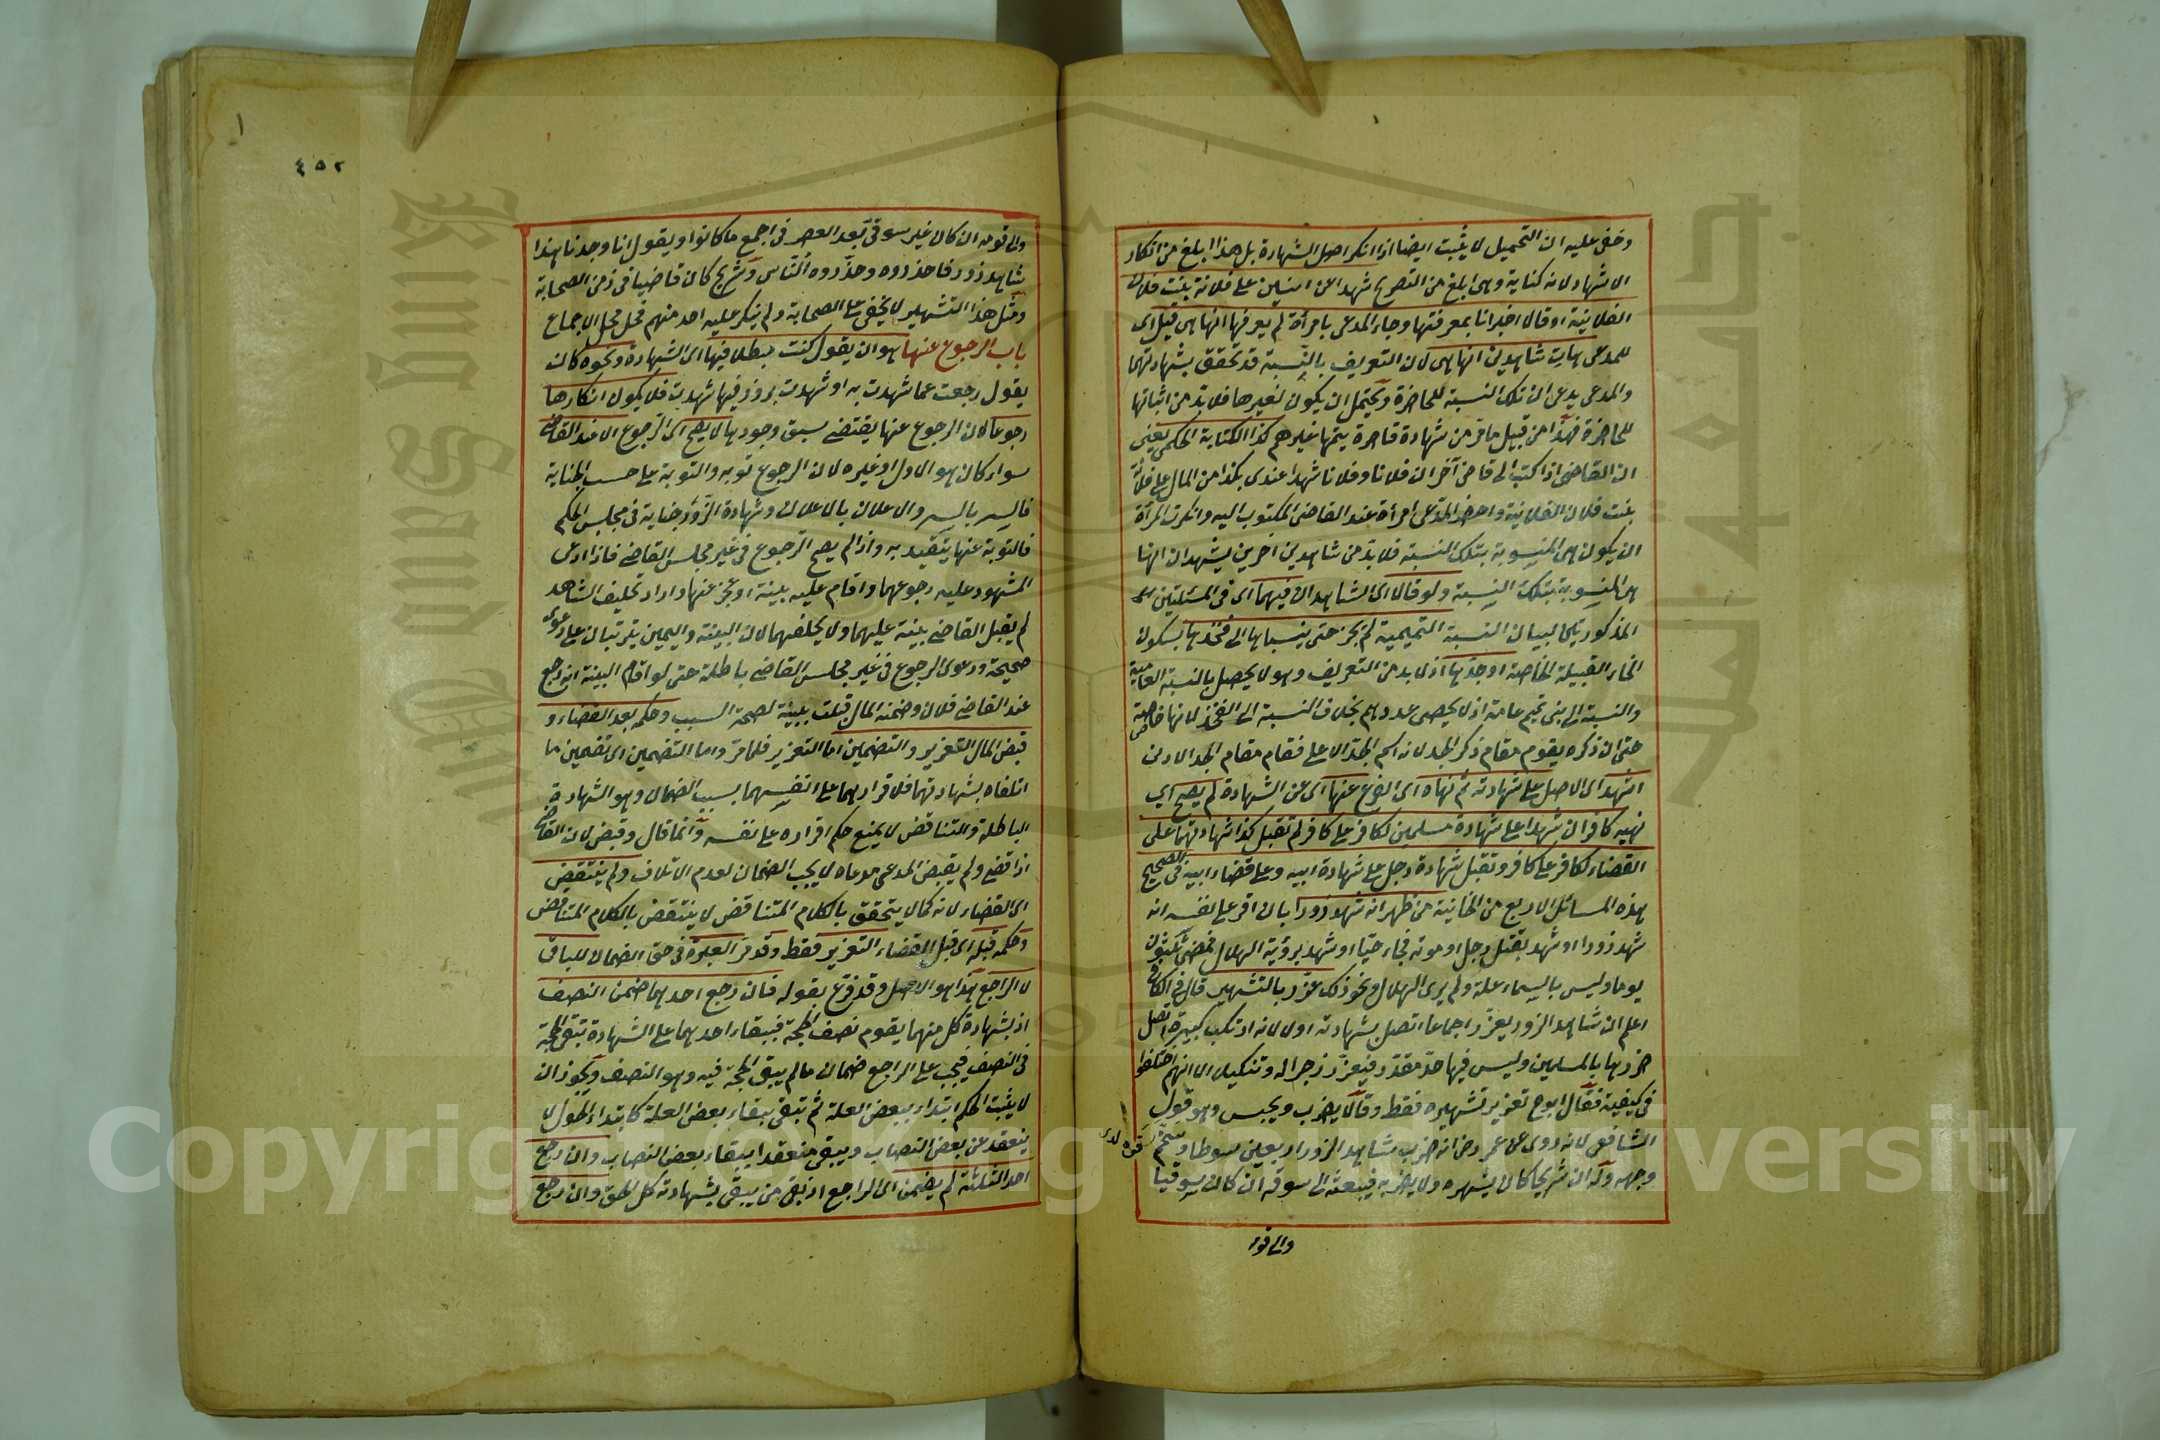 وخفى عليه ان التحميل لا يثبت ايضا اذا انكر اصل الشهادة بل هذا ابلغ من انكار
الاشهاد لانه كناية وهى ابلغ من التصريح شهدا عن اثنين على فلانة بنت فلان
الفلانية وقالا اخبرانا بمعرفتها وجاء المدعى بامرأة لم يعرفها انها هى قيل اى
للمدعى هات شاهدين انها هى لان التعريف بالنسبة قد تحقق بشهادتهما
والمدعى يدعى ان تلك النسبة للحاضرة ويحتمل ان يكون لغيرها فلا بد من اثباتها
للحاضرة فهذا من قبيل ما مر من شهادة قاصرة يتمها غيرهم كذا الكتابة الحكمى يعنى
ان القاضى اذا كتب الى قاض آخر ان فلانا وفلانا شهدا عندى بكذا من المال على فلانة
بنت فلان الفلانية واحضر المدعى امرأة عند القاضى المكتوب اليه وانكرت المرأة
ان يكون هى المنسوبة بتلك النسبة فلا بد من شاهدين آخرين يشهدان انها
هى المنسوبة بتلك النسبة ولو قالا اى الشاهدان فيهما اى فى المسئلتين
المذكورتين لبيان النسبة التميمية لم يجز حتى ينسباها الى فخذها بسكون
الخاء القبيلة الخاصة او جدها اذ لا بد من التعريف وهو لا يحصل بالنسبة العامة
والنسبة الى بنى تميم عامة اذ لا يحصى عددهم بخلاف النسبة الى الفخذ لانها خاصة
حتى ان ذكره يقوم مقام ذكر الجد لانه اسم الجد الاعلى فقام مقام الجد الادنى
اشهد اى الاصل على شهادته ثم نهاه اى الفرع عنها اى عن الشهادة لم يصح اي
نهيه كافران شهدا على شهادة مسلمين لكافر على كافر لم تقبل كذا شهادتهما على
القضاء لكافر على كافر وتقبل شهادة رجل على شهادة ابيه وعلى قضاء ابيه فى الصحيح
هذه المسائل الاربع من الخانية من ظهر انه شهد زورا بان اقر على نفسه انه
شهد زورا او شهد بقتل رجل او موته فجاء حيا او شهد برؤية الهلال فمضى ثلثون
يوما وليس بالسماء علة ولم يرى الهلال ونحو ذلك عزر بالتشهير قال فى الكافى
اعلم ان شاهد الزور يعزر اجماعا اتصل بشهادته اولا لانه ارتكب كبيرة اتصل
ضررها بالمسلمين وليس فيها حد مقدر فيعزر زجرا له وتنكيلا الا انهم اختلفوا
فى كيفية فقال ابو ح تعزير تشهيره فقط وقالا يضرب ويحبس وهو قول
الشافعى لانه روى عن عمر رض انه ضرب شاهد الزور اربعين سوطا وسخم
وجهه وله ان شريحا كان يشهره ولا يضربه فيبعثه الى سوقه ان كان سوقيا
والى قومه
٤٥٢
والى قومه ان كان غير سوقى بعد العصر فى اجمع ما كانوا ويقول انا وجدنا هذا
شاهد زور فاحذروه وحذروه الناس وشريح كان قاضيا فى زمن الصحابة
ومثل هذا التشهير لا يخفى على الصحابة ولم ينكر عليه احد منهم فحل محل الاجماع
باب الرجوع عنها هو ان يقول كنت مبطلا فيها اى الشهادة ونحوه كان
يقول رجعت عما شهدت به او شهدت بزور فيها شهدت فلا يكون انكارها
رجوعا لان الرجوع عنها يقتضى سبق وجودها لا يصح اى الرجوع الا عند القاضى
سواء كان هو الاول او غيره لان الرجوع توبه والتوبة على حسب الجناية
فالسر بالسر والاعلان بالاعلان وشهادة الزور جناية فى مجلس الحكم
فالتوبة عنها يتقيد به واذا لم يصح الرجوع فى غير مجلس القاضى فاذا ادعى
المشهود عليه رجوعهما واقام عليه بينة او عجز عنها واراد تحليف الشاهد
لم يقبل القاضى بينة عليهما ولا يحلفهما لان البينة واليمين يترتبان على دعوى
صحيحة ودعوى الرجوع فى غير مجلس القاضى باطلة حتى لو اقام البينة انه رجع
عند القاضى فلان وضمنه المال قبلت بينة لصحة السبب وحكمه بعد القضاء و
قبض المال التعزير والتضمين اما التعزير فلما مر واما التضمين اى تضمين ما
اتلفاه بشهادتهما فلاقرارهما على انفسهما بسبب الضمان وهو الشهادة
الباطلة والتناقض لا يمنع حكم اقراره على نفسه وانما قال وقبض لان القاضى
اذا قضى ولم يقبض المدعى مدعاه لا يجب الضمان لعدم الاتلاف ولم ينتقض
اى القضاء لانه كما لا يتحقق بالكلام المتناقض لا ينتقض بالكلام المتناقض
وحكمه قبله اى قبل القضاء التعزير فقط وقد مر العبرة فى حق الضمان للباقى
لا الراجع هذا هو الاصل وقد فرع بقوله فان رجع احدهما ضمن النصف
اذ بشهادة كل منهما يقوم نصف الحجة فببقاء احدهما على الشهادة تبقى الحجة
فى النصف فيجب على الراجع ضمان ما لم يبق الحجة فيه وهو النصف ويجوز ان
لا يثبت الحكم ابتداء ببعض العلة ثم تبقى ببقاء بعض العلة كابتداء الحول لا
ينعقد عن بعض النصاب ويبقى منعقدا ببقاء بعض النصاب وان رجع
احد الثلثة لم يضمن اى الراجع اذ بقى من يبقى بشهادته كل الحق وان رجع
Copyright © King Saud University
King Saud University
جامعة الملك سعود
1957